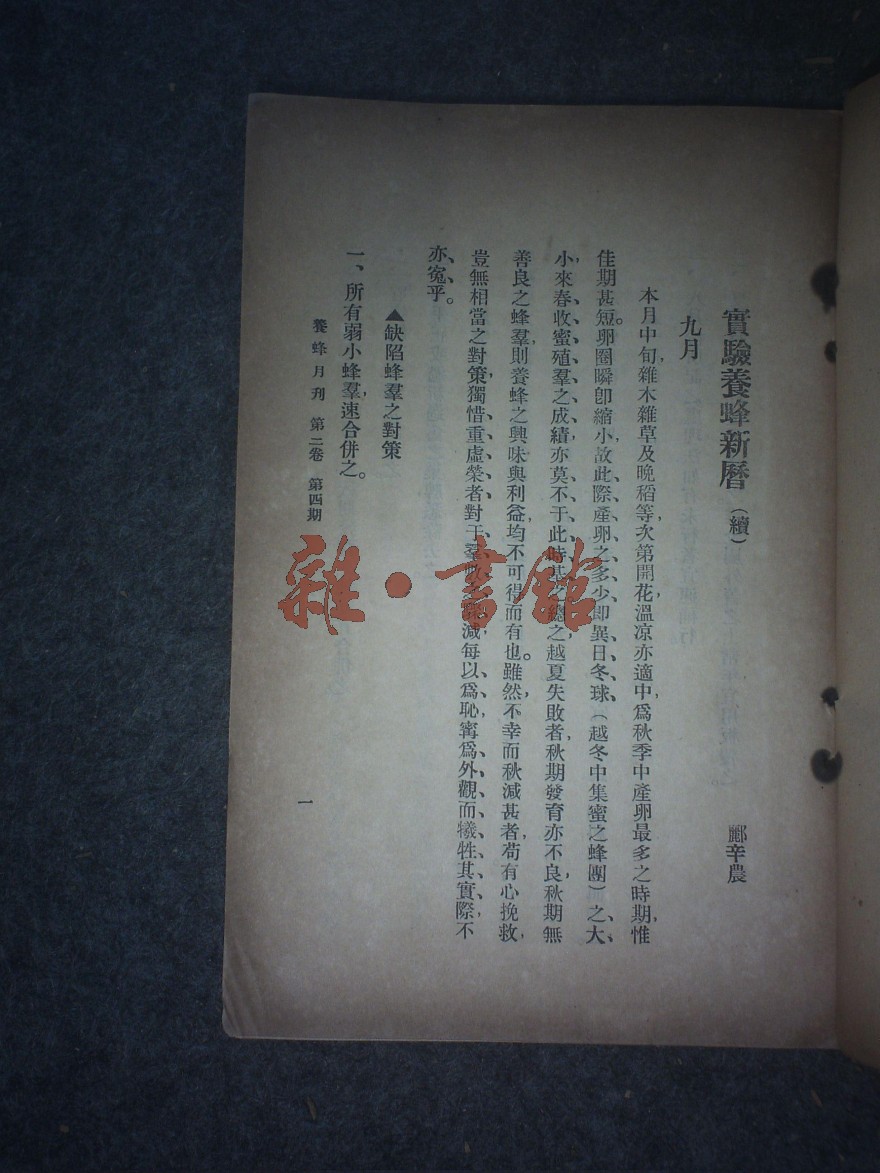 實驗養蜂新曆（續）
酈辛農
九月
本月中旬，雜木雜草及晚稻等次第開花，溫凉亦適中，爲秋季中產卵最多之時期，惟
佳期甚短。卵圈瞬卽縮小，故此際產卵之多少，即異日冬球（越冬中集蜜之蜂團）之大
小，來春收蜜殖羣之成績，亦莫不于此時基之，總之越夏失敗者，秋期發育亦不良，秋期無
善良之蜂羣，則養蜂之興味與利益，均不可得而有也。雖然，不幸而秋減甚者，苟有心挽救，
豈無相當之對策，獨惜重虛榮者，對于羣數之減，每以爲恥，甯爲外觀而犧牲其實際，不
亦寃乎。
▲缺陷蜂羣之對策
一、所有弱小蜂羣，速合併之。
養蜂月刊　第二卷　第四期
一
雜·書館